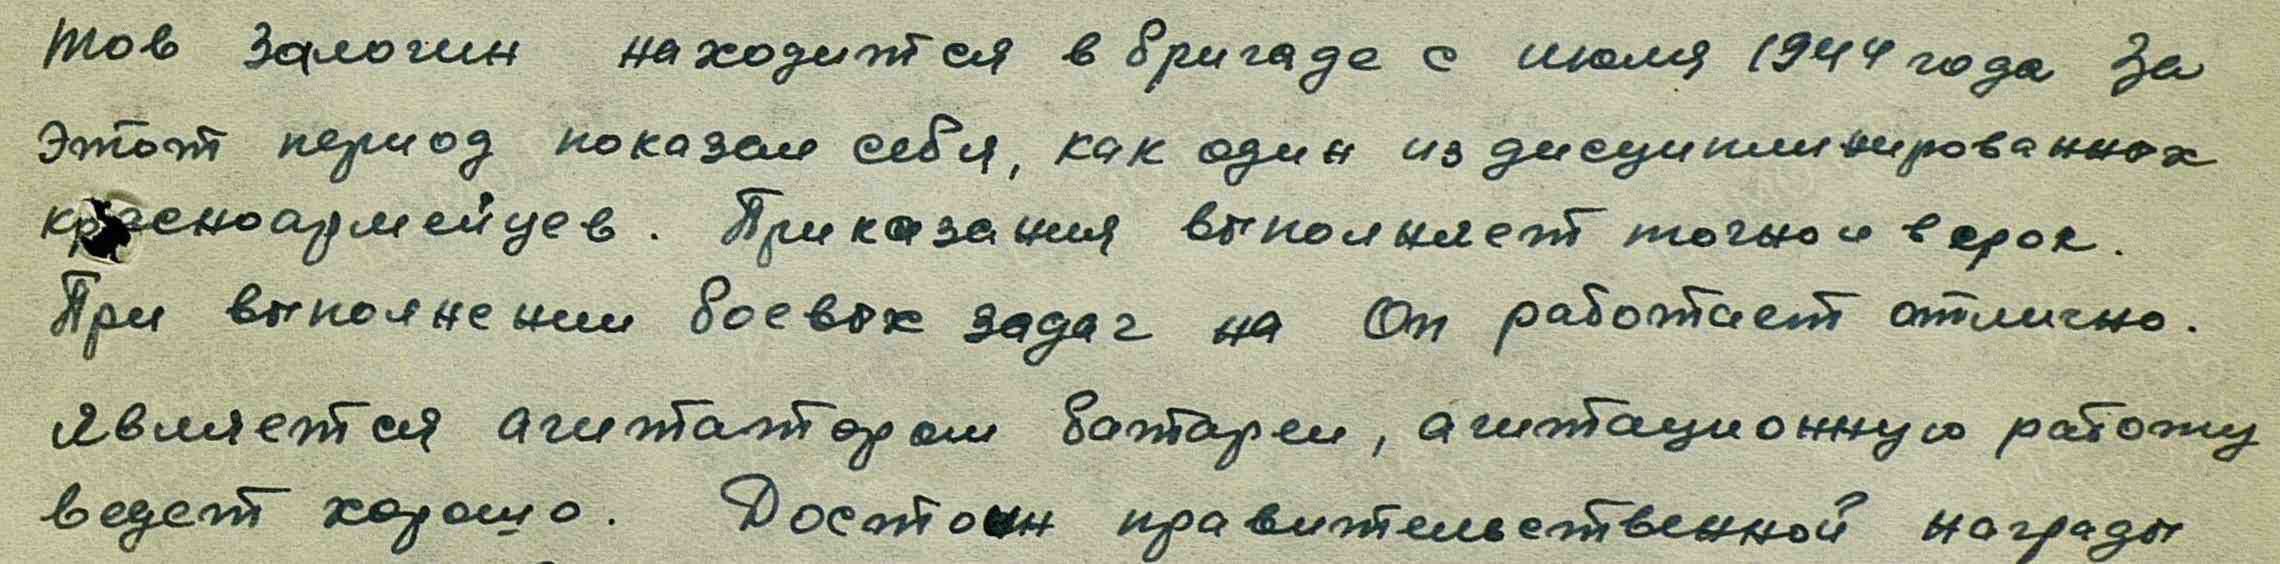 Тов Залогин находится в бригаде с июля 1944 года За
этот период показал себя, как один из дисциплинированных
красноармейцев. Приказания выполняет точно и в срок.
При выполнении боевых задач на Оп работает отлично.
Является агитатором батареи, агитационную работу
ведет хорошо. Достоин правительственной награды